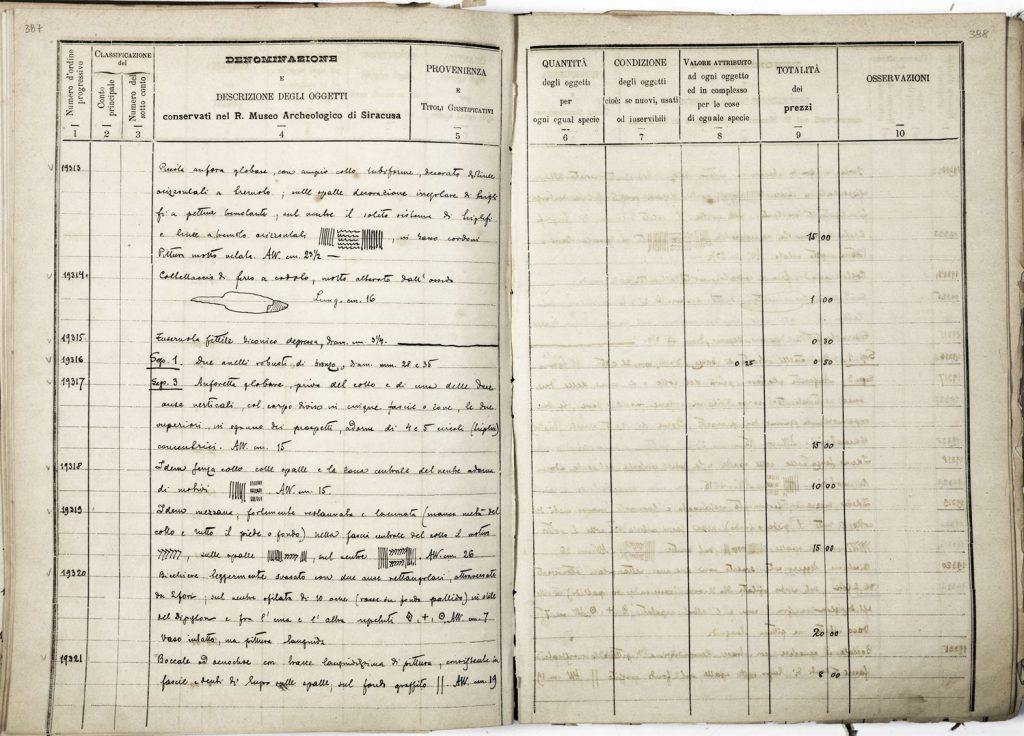 387
388
Numero d'ordine progressivo
1
CLASSIFICAZIONE del
Conto principale
2
Numero del sotto conto
3
DENOMINAZIONE
E
DESCRIZIONE DEGLI OGGETTI
conservati nel R. Museo Archeologico di Siracusa
4
PROVENIENZA
E
TITOLI GIUSTIFICATIVI
5
QUANTITÀ
degli oggetti
per
ogni egual specie
6
CONDIZIONE
degli oggetti
cioè: se nuovi, usati
od inservibili
7
VALORE ATTRIBUITO
ad ogni oggetto
ed in complesso
per le cose
di eguale specie
8
TOTALITÀ
dei
prezzi
9
OSSERVAZIONI
10
19313 Piccola anfora globare, con ampio collo tubiforme, decorato di linee
orizzontali a tremolo; sulle spalle decorazione irregolare di trigli
fi a pettine tremolante, sul ventre il solito sistema di triglifi
e linee a tremolo orizzontali, in basso cordoni 15 00
Pittura molto velata. Alt. cm. 23½ —
19314 Coltellaccio di ferro a codolo, molto alterato dall'ossido
Lung. cm. 16 1 00
19315 Fuseruola fittile biconica depressa, diam. cm. 3¼. 0 30
19316 Sep. 1. Due anelli robusti di bronzo, diam. mm. 28 e 35 0 25 0 50
19317 Sep. 3 Anforetta globare, priva del collo e di una delle due
anse verticali, col corpo diviso in cinque fascie o zone, le due
superiori, in ognuno dei prospetti, adorne di 4 e 5 circoli (triplici)
concentrici. Alt. cm. 15 15 00
19318 Idem senza collo colle spalle e la zona centrale del ventre adorne
di motivi Alt. cm. 15 10 00
19319 Idem mezzana, fortemente restaurata e lacunata (manca metà del
collo e tutto il piede o fondo) nella fascia centrale del collo il motivo
, sulle spalle , sul ventre Alt. cm. 26 15 00
19320 Bicchiere leggermente svasato con due anse rettangolari, attraversate
da 2 fori; sul ventre sfilata di 10 oche (rosse su fondo pallido) in stile
del dipylon e fra l'una e l'altra repetuti + Alt. cm. 7
vaso intatto, ma pittura languida 20 00
19321 Boccale ad oenochoe con tracce languidissime di pittura, consistente in
fascie e denti di lupo sulle spalle; sul fondo graffito || Alt. cm. 19 8 00